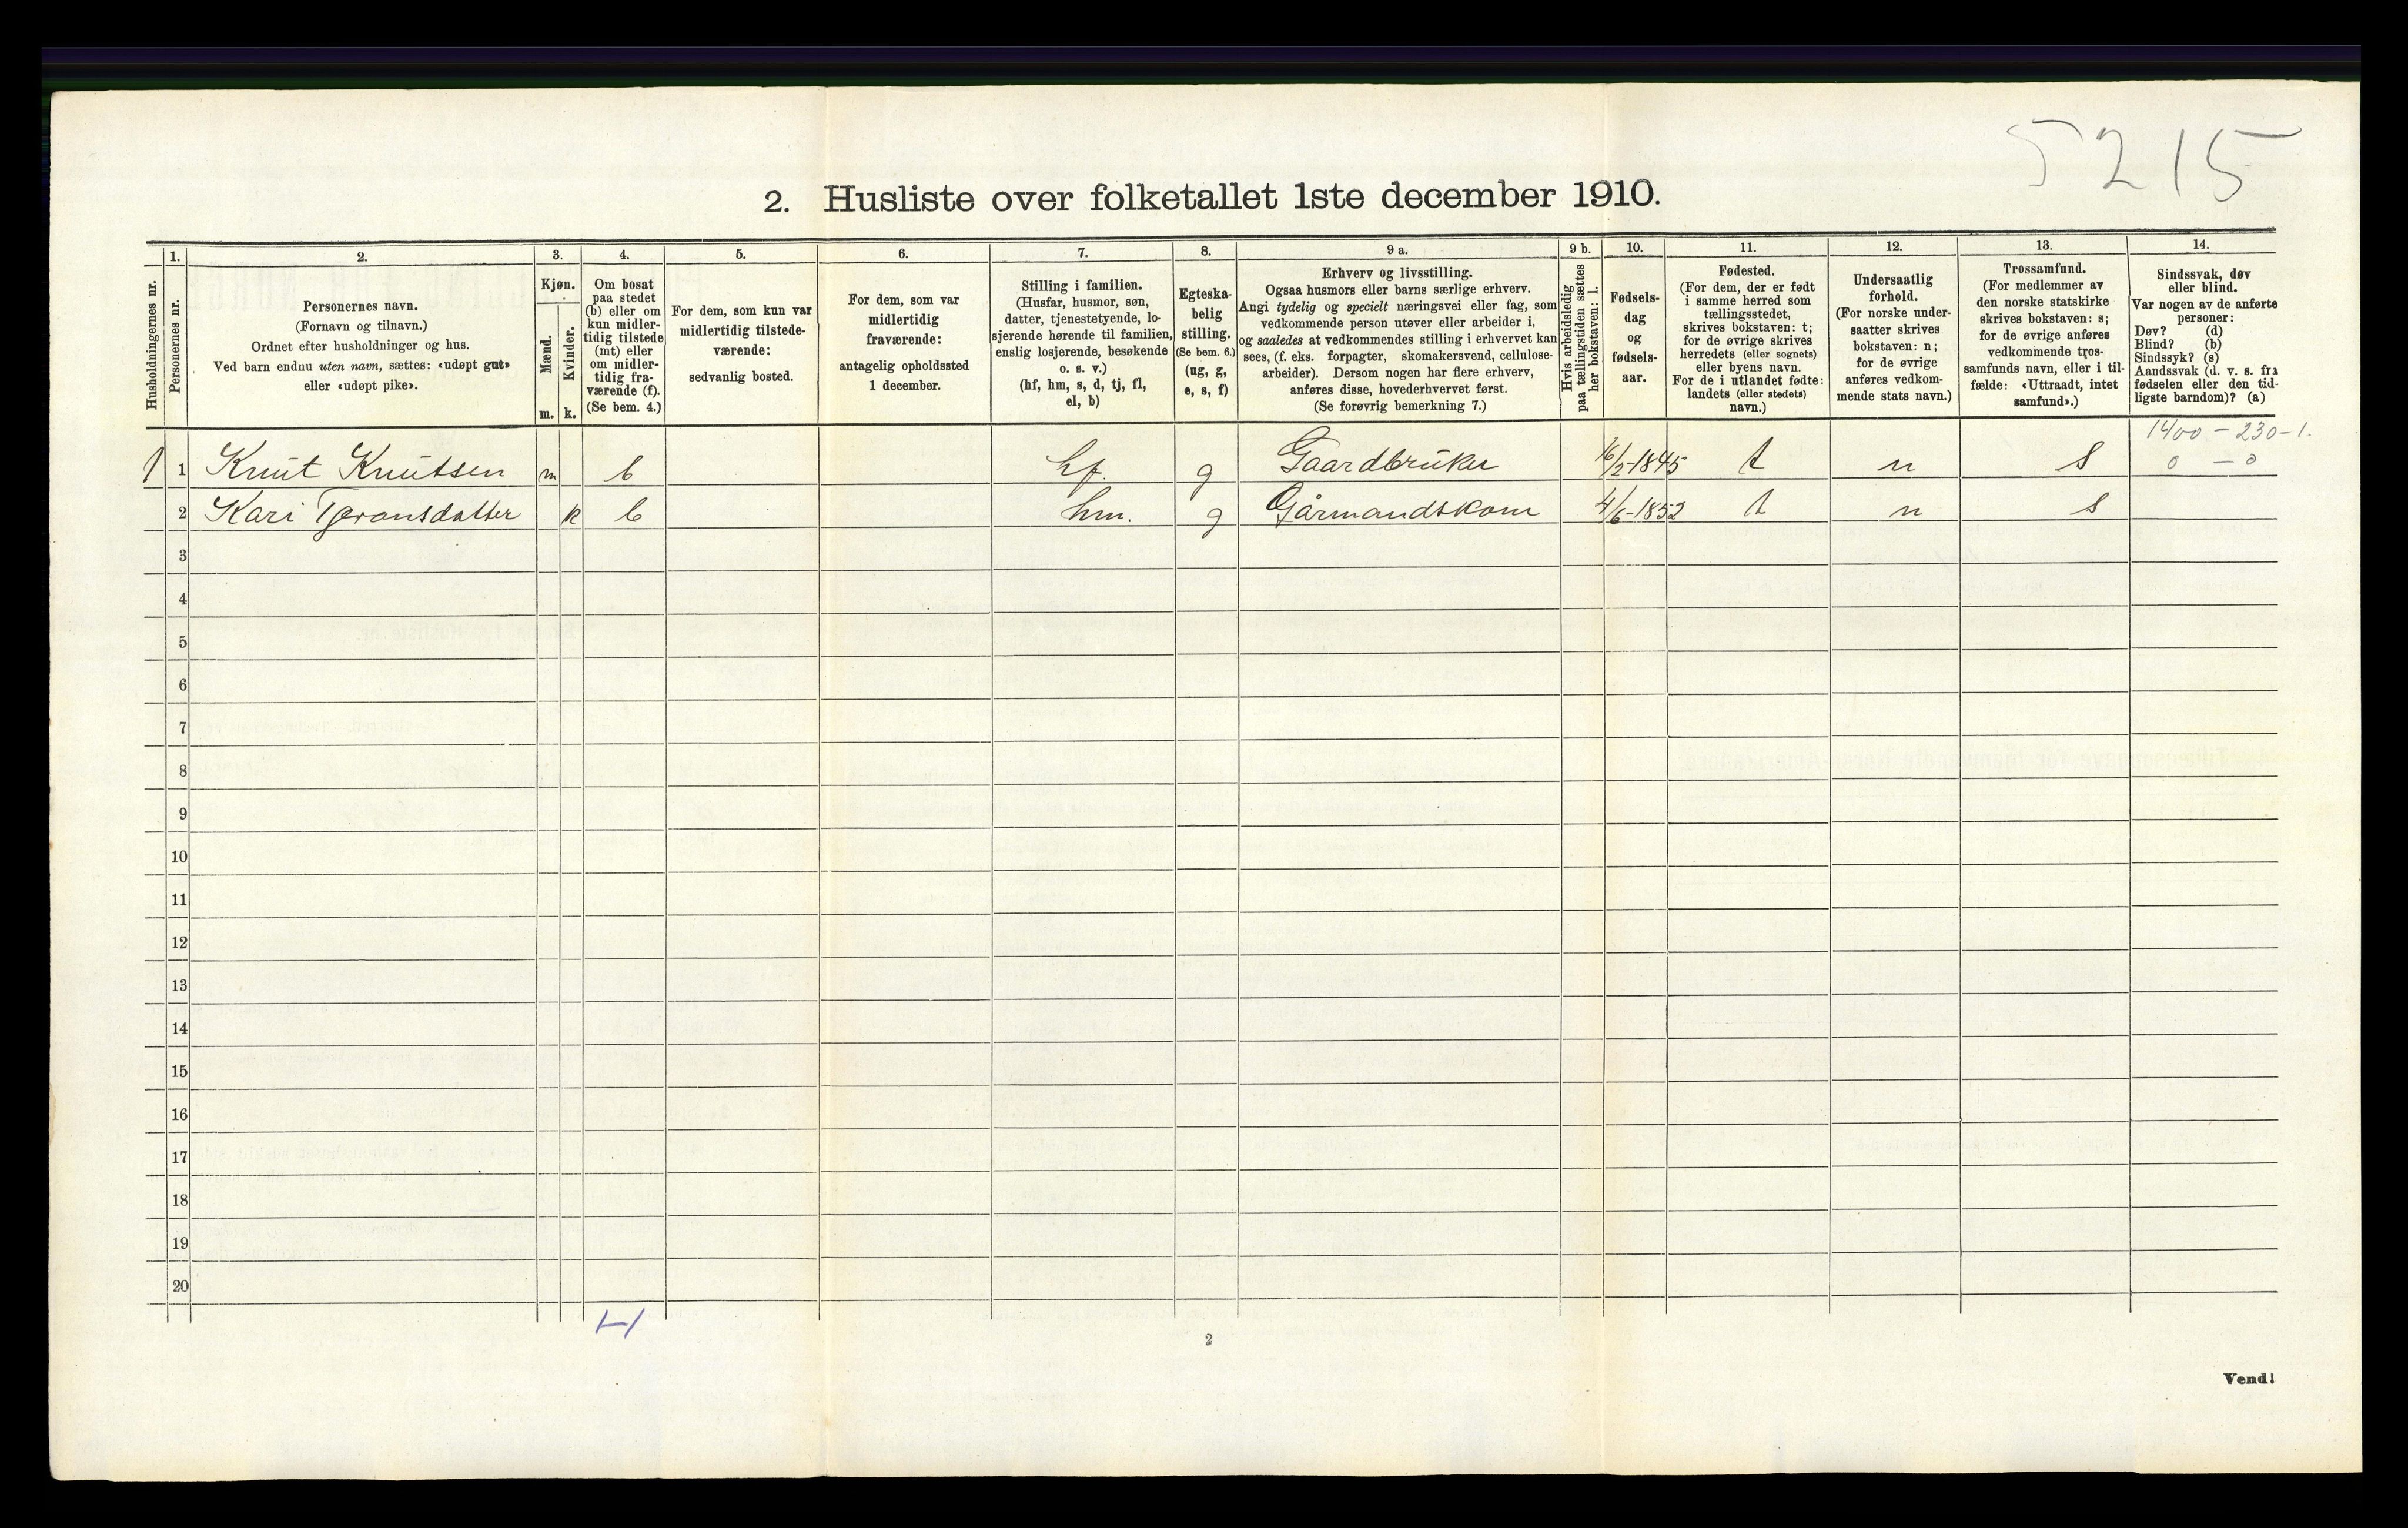 5215
2. Husliste over folketallet 1ste december 1910.
Husholdningernes nr.
1.
Personernes nr.
2.
Personernes navn.
(Fornavn og tilnavn.)
Ordnet efter husholdninger og hus.
Ved barn endnu uten navn, sættes: «udøpt gut»
eller «udøpt pike».
3.
Kjøn.
Mænd.
m.
Kvinder.
k.
4.
Om bosat
paa stedet
(b) eller om
kun midler-
tidig tilstede
(mt) eller
om midler-
tidig fra-
værende (f).
(Se bem. 4.)
5.
For dem, som kun var
midlertidig tilstede-
værende:
sedvanlig bosted.
6.
For dem, som var
midlertidig
fraværende:
antagelig opholdssted
1 december.
7.
Stilling i familien.
(Husfar, husmor, søn,
datter, tjenestetyende, lo-
sjerende hørende til familien,
enslig losjerende, besøkende
o. s. v.)
(hf, hm, s, d, tj, fl,
el, b)
8.
Egteska-
belig
stilling.
(Se bem. 6.)
(ug, g,
e, s, f)
9 a.
Erhverv og livsstilling.
Ogsaa husmors eller barns særlige erhverv.
Angi tydelig og specielt næringsvei eller fag, som
vedkommende person utøver eller arbeider i,
og saaledes at vedkommendes stilling i erhvervet kan
sees, (f. eks. forpagter, skomakersvend, cellulose-
arbeider). Dersom nogen har flere erhverv,
anføres disse, hovederhvervet først.
(Se forøvrig bemerkning 7.)
9 b.
Hvis arbeidsledig
paa tællingstiden sættes
her bokstaven: l.
10.
Fødsels-
dag
og
fødsels-
aar.
11.
Fødested.
(For dem, der er født
i samme herred som
tællingsstedet,
skrives bokstaven: t;
for de øvrige skrives
herredets (eller sognets)
eller byens navn.
For de i utlandet fødte:
landets (eller stedets)
navn.)
12.
Undersaatlig
forhold.
(For norske under-
saatter skrives
bokstaven: n;
for de øvrige
anføres vedkom-
mende stats navn.)
13.
Trossamfund.
(For medlemmer av
den norske statskirke
skrives bokstaven: s;
for de øvrige anføres
vedkommende tros-
samfunds navn, eller i til-
fælde: «Uttraadt, intet
samfund».)
14.
Sindssvak, døv
eller blind.
Var nogen av de anførte
personer:
Døv? (d)
Blind? (b)
Sindssyk? (s)
Aandssvak (d. v. s. fra
fødselen eller den tid-
ligste barndom)? (a)
1400 - 230 - 1.
1 1 Knut Knutsen m b hf. g Gaardbruker 16/2-1845 t n s 0 - 0
2 Kari Tjeransdatter k b hm. g Gårmandskone 4/6-1852 t n s
3
4
5
6
7
8
9
10
11
12
13
14
15
16
17
18
19
20
2
Vend!